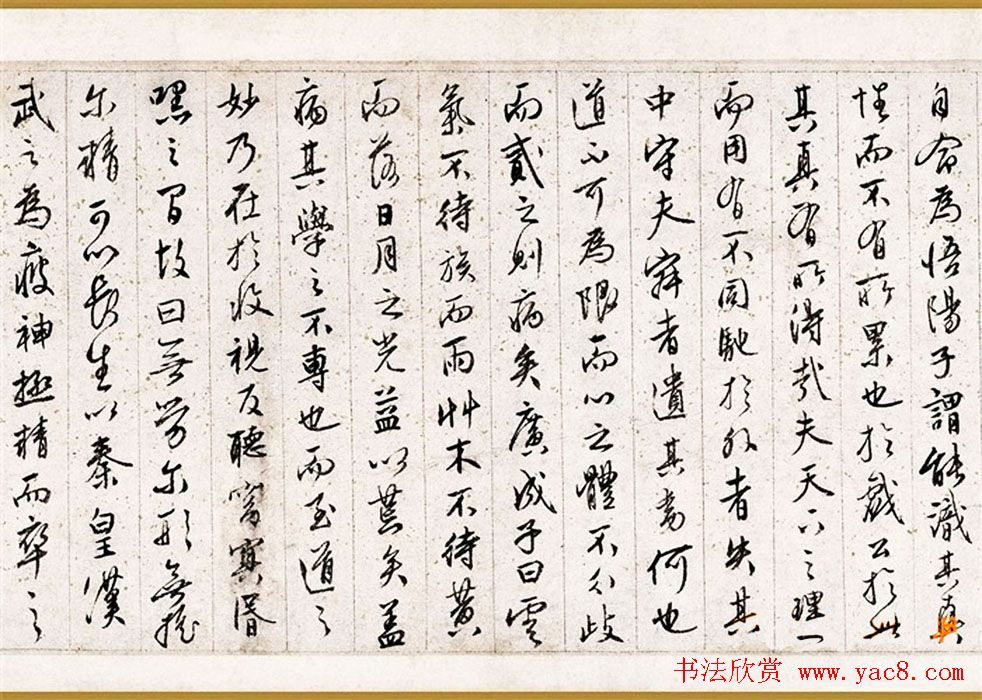 自命為悟陽子謂能識其真
性而不有所累也於戲公於此
其真有所得哉夫天下之理一
而用有不同馳於外者失其
中守夫寂者遺其旁何也
道不可為限而心之體不分歧
而貳之則病矣廣成子曰雲
氣不待族而雨艸木不待黃
而落日月之光益以荒矣蓋
病其學之不專也而至道之
妙乃在於收視反聽窈冥昏
嘿之間故曰無勞尔形無搖
尔精可以長生以秦皇漢
武之為疲神極精而卒之
书法欣赏 www.yac8.com